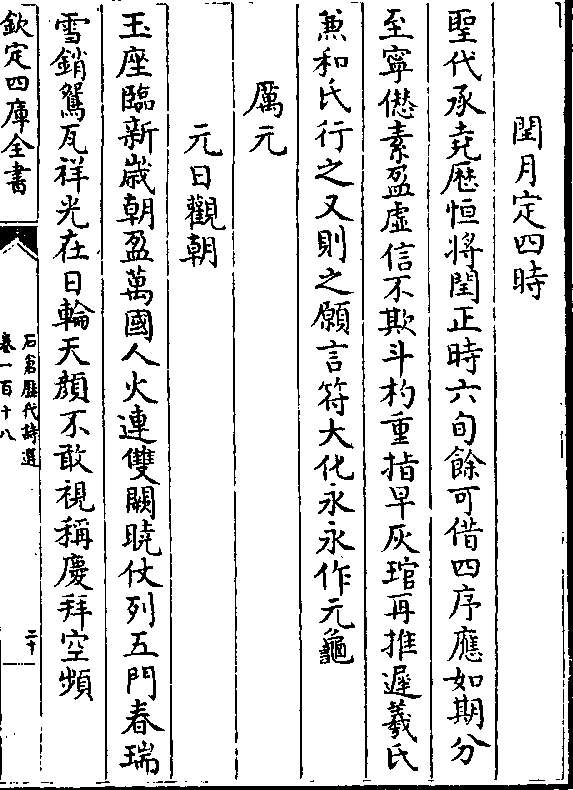 閏月定四時
聖代承堯厯恒將閏正時六旬餘可借四序應如期分
至寧愆素盈虛信不欺斗杓重指早灰琯再推遲羲氏
兼和氏行之又則之願言符大化永永作元龜
厲元
元日觀朝
玉座臨新歲朝盈萬國人火連雙闕曉仗列五門春瑞
雪銷鴛瓦祥光在日輪天顔不敢視稱慶拜空頻
欽定四庫全書
石倉歷代詩選
卷一百十八
二十